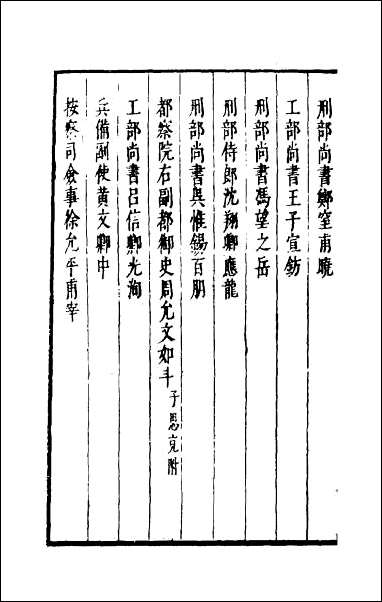 刑部尚書鄭窒甫曉
工部尚書王子宣鈁
刑部尚書馮望之岳
刑部侍郎沈翔卿應龍
刑部尚書吳惟錫百朋
都察院右副都御史周允文如斗子思克附
工部尚書呂信卿光洵
兵備副使黃文卿中
按察司僉事徐允平甫宰